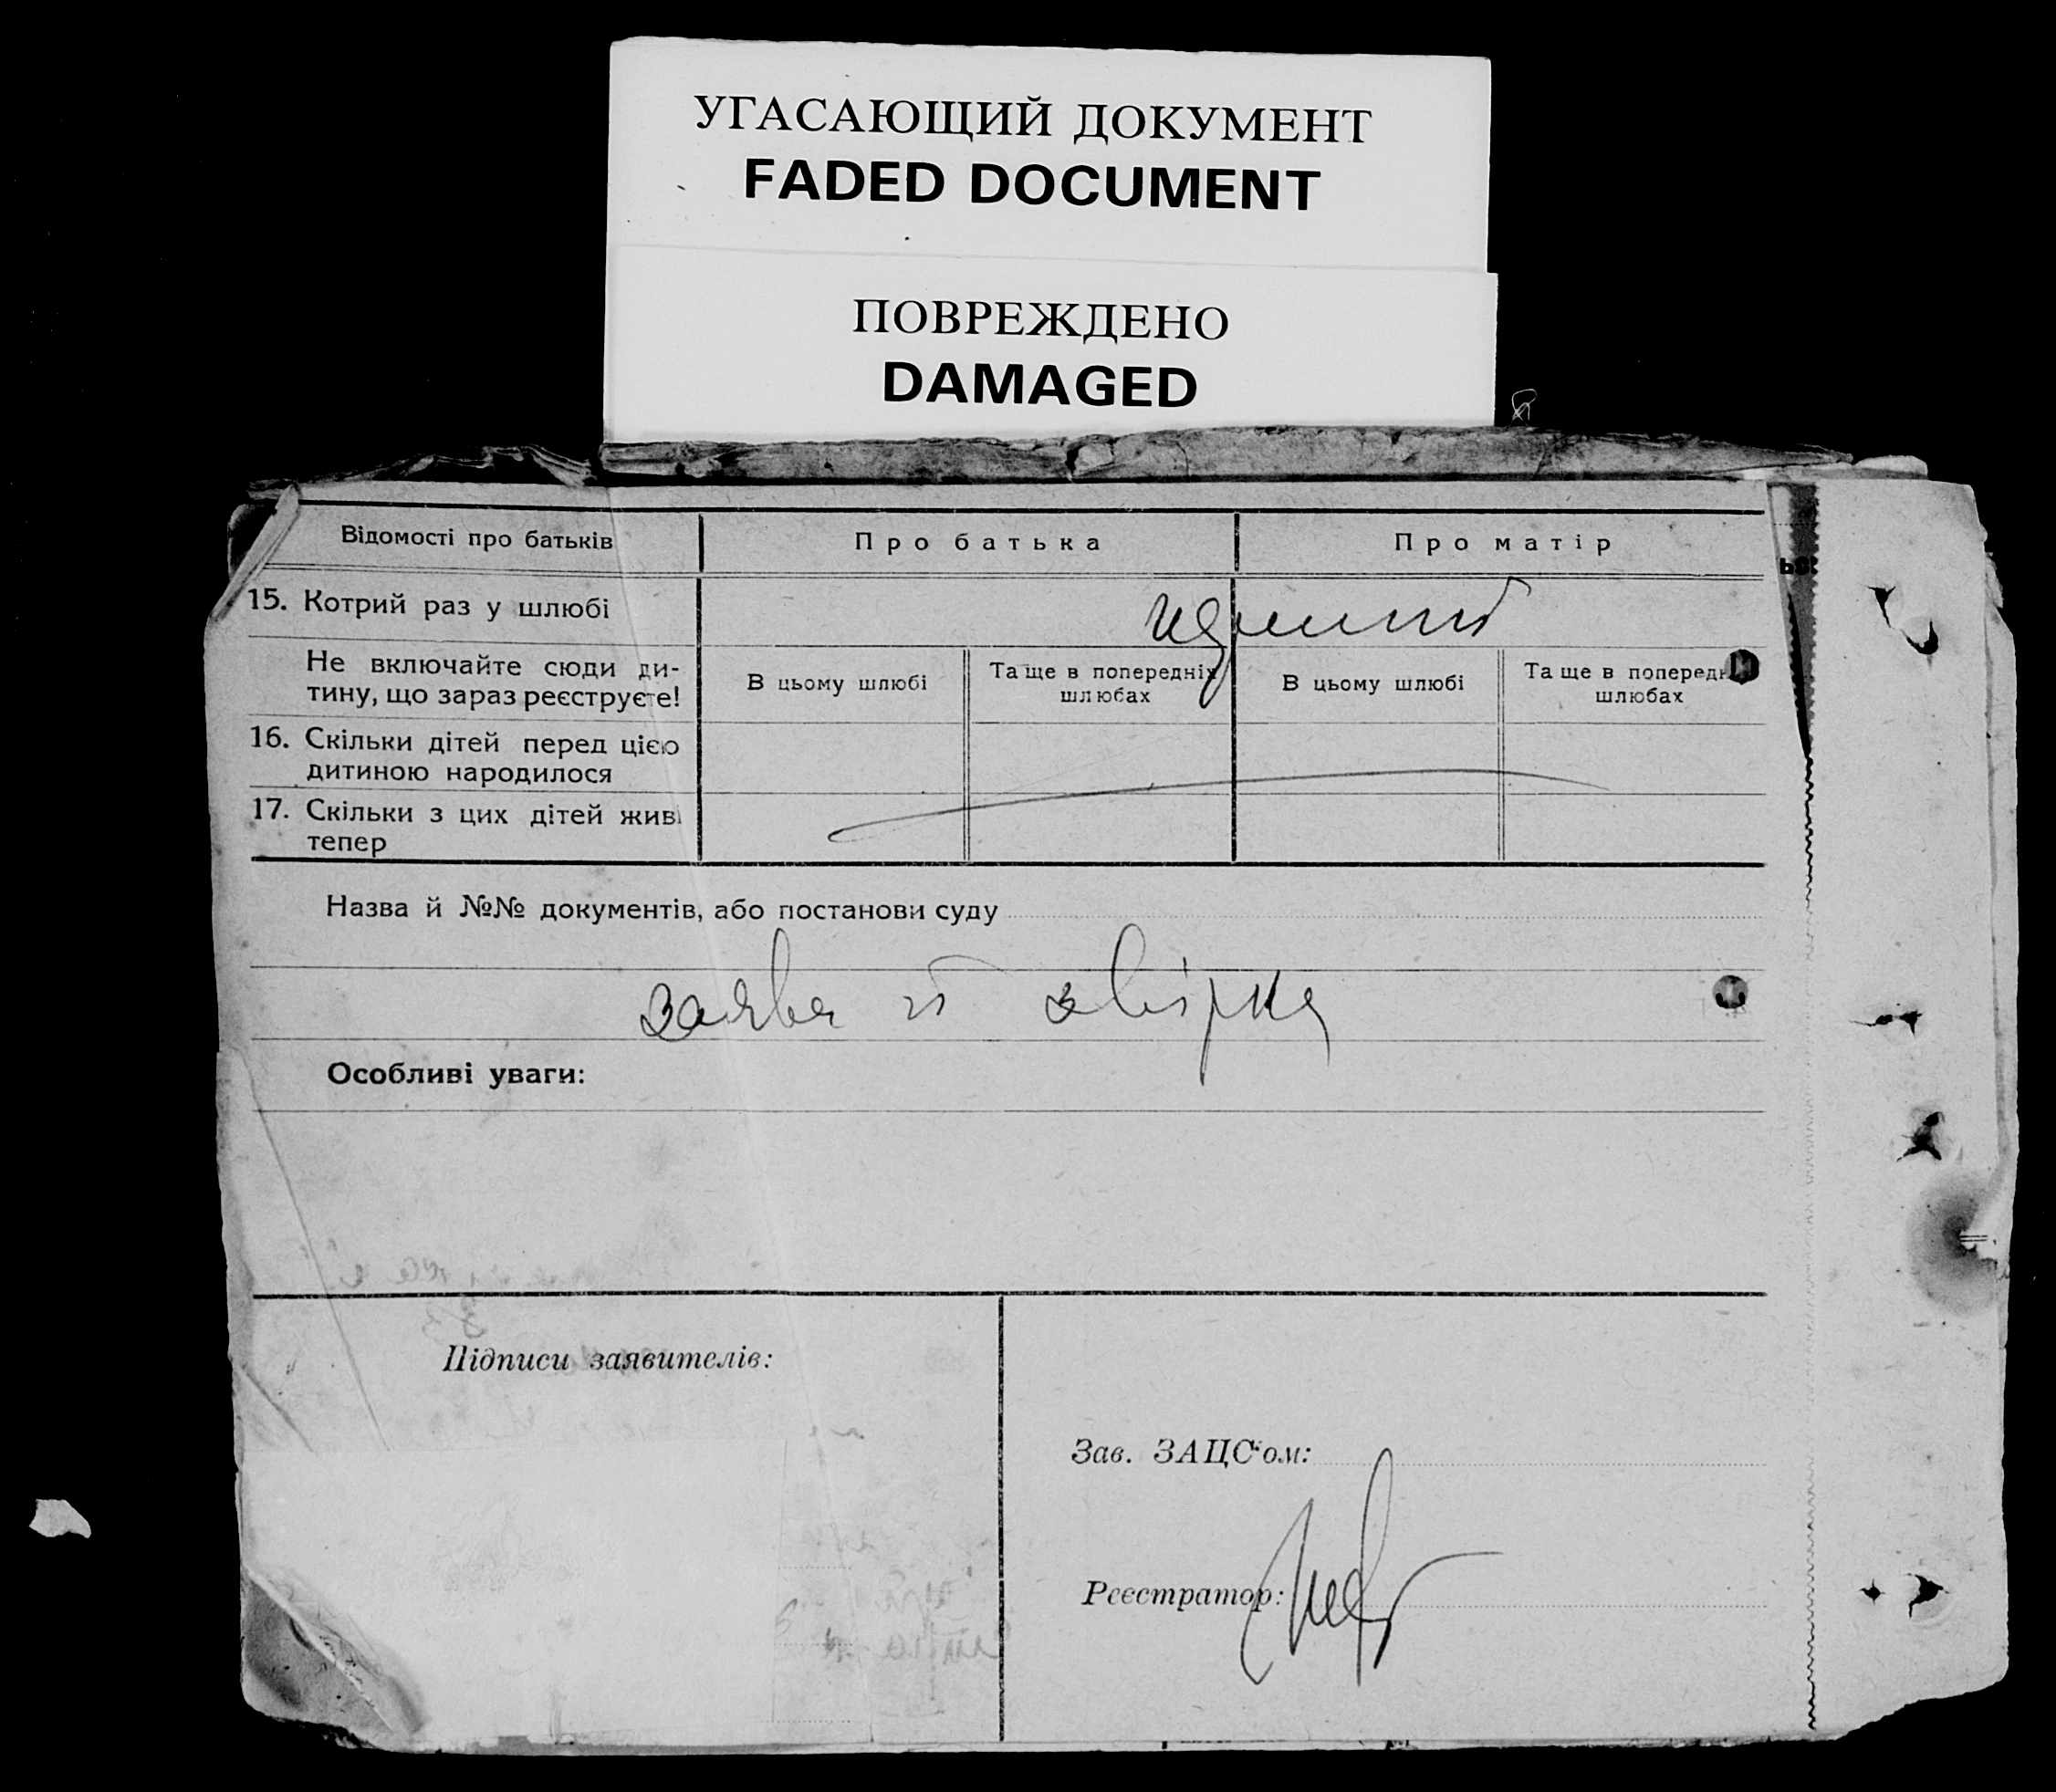 УГАСАЮЩИЙ ДОКУМЕНТ
FADED DOCUMENT
ПОВРЕЖДЕНО
DAMAGED
Відомості про батьків
Про батька
Про матір
15. Котрий раз у шлюбі
Не включайте сюди ди-
тину, що зараз реєструєте!
В цьому шлюбі
Та ще в попередніх
шлюбах
В цьому шлюбі
Та ще в попередн
шлюбах
16. Скільки дітей перед цією
дитиною народилося
17. Скільки з цих дітей живі
тепер
Назва й №№ документів, або постанови суду
заява й звірка
Особливі уваги:
Підписи заявителів:
Зав. ЗАЦС‘ом:
Реєстратор: